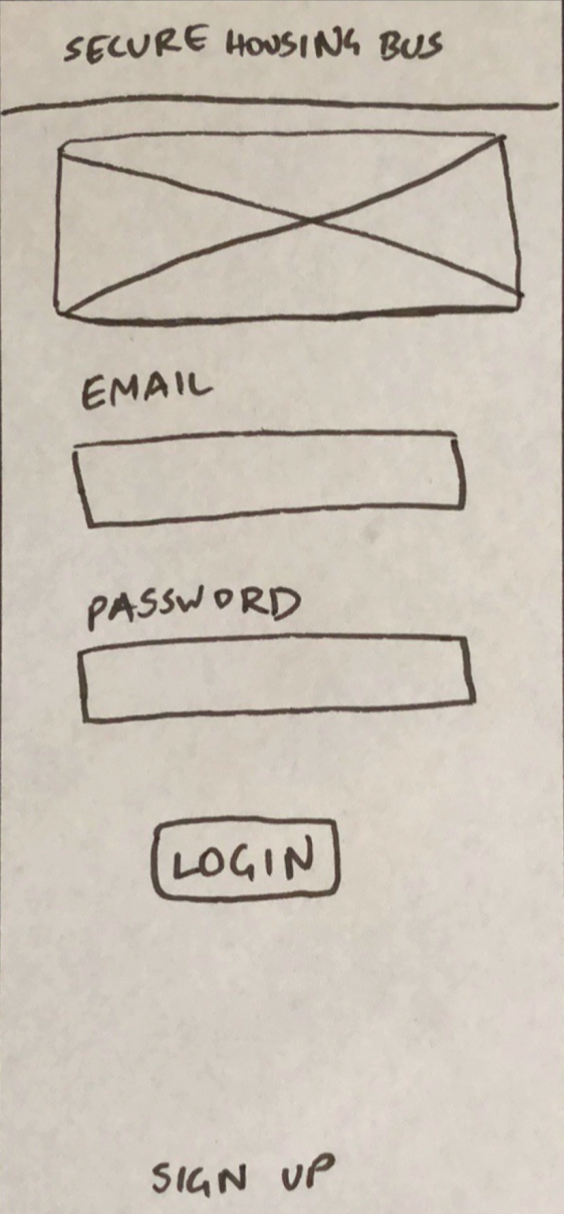 SECURE HOUSING BUS
EMAIL
PASSWORD
LOGIN
SIGN UP